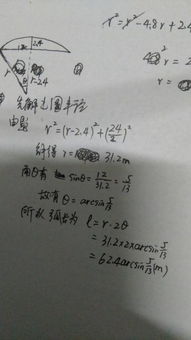 r²=r²-4.8r+2.4
2.4
12
r
r-2.4
θ
r=
先解出圆半径
由题 r²=(r-2.4)²+(24/2)²
解得 r= 31.2m
sinθ=12/31.2=5/13
故有 θ=arcsin5/13
所以 弧长为 l=r·2θ
=31.2×2×arcsin5/13
=62.4arcsin5/13(m)